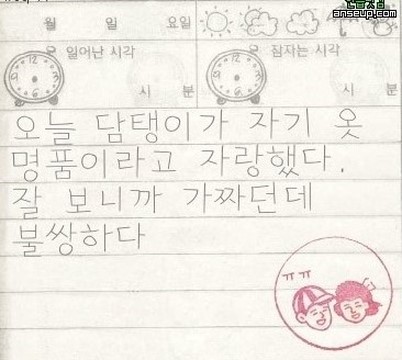 월 일 요일
일어난 시각 잠자는 시각
시 분 시 분
오늘 담탱이가 자기 옷
명품이라고 자랑했다.
잘 보니까 가짜던데
불쌍하다
ㅠㅠ
anseup.com